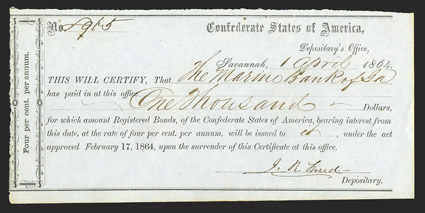 No. 8965 Confederate States of America,
Depositary's Office,
Savannah, 1 April 1864.
THIS WILL CERTIFY, That The Marine Bank of Ga
has paid in at this office One Thousand Dollars,
for which amount Registered Bonds, of the Confederate States of America, bearing interest from
this date, at the rate of four per cent. per annum, will be issued to it, under the act
approved February 17, 1864, upon the surrender of this Certificate at this office.
Depositary.
Four per cent. per annum.